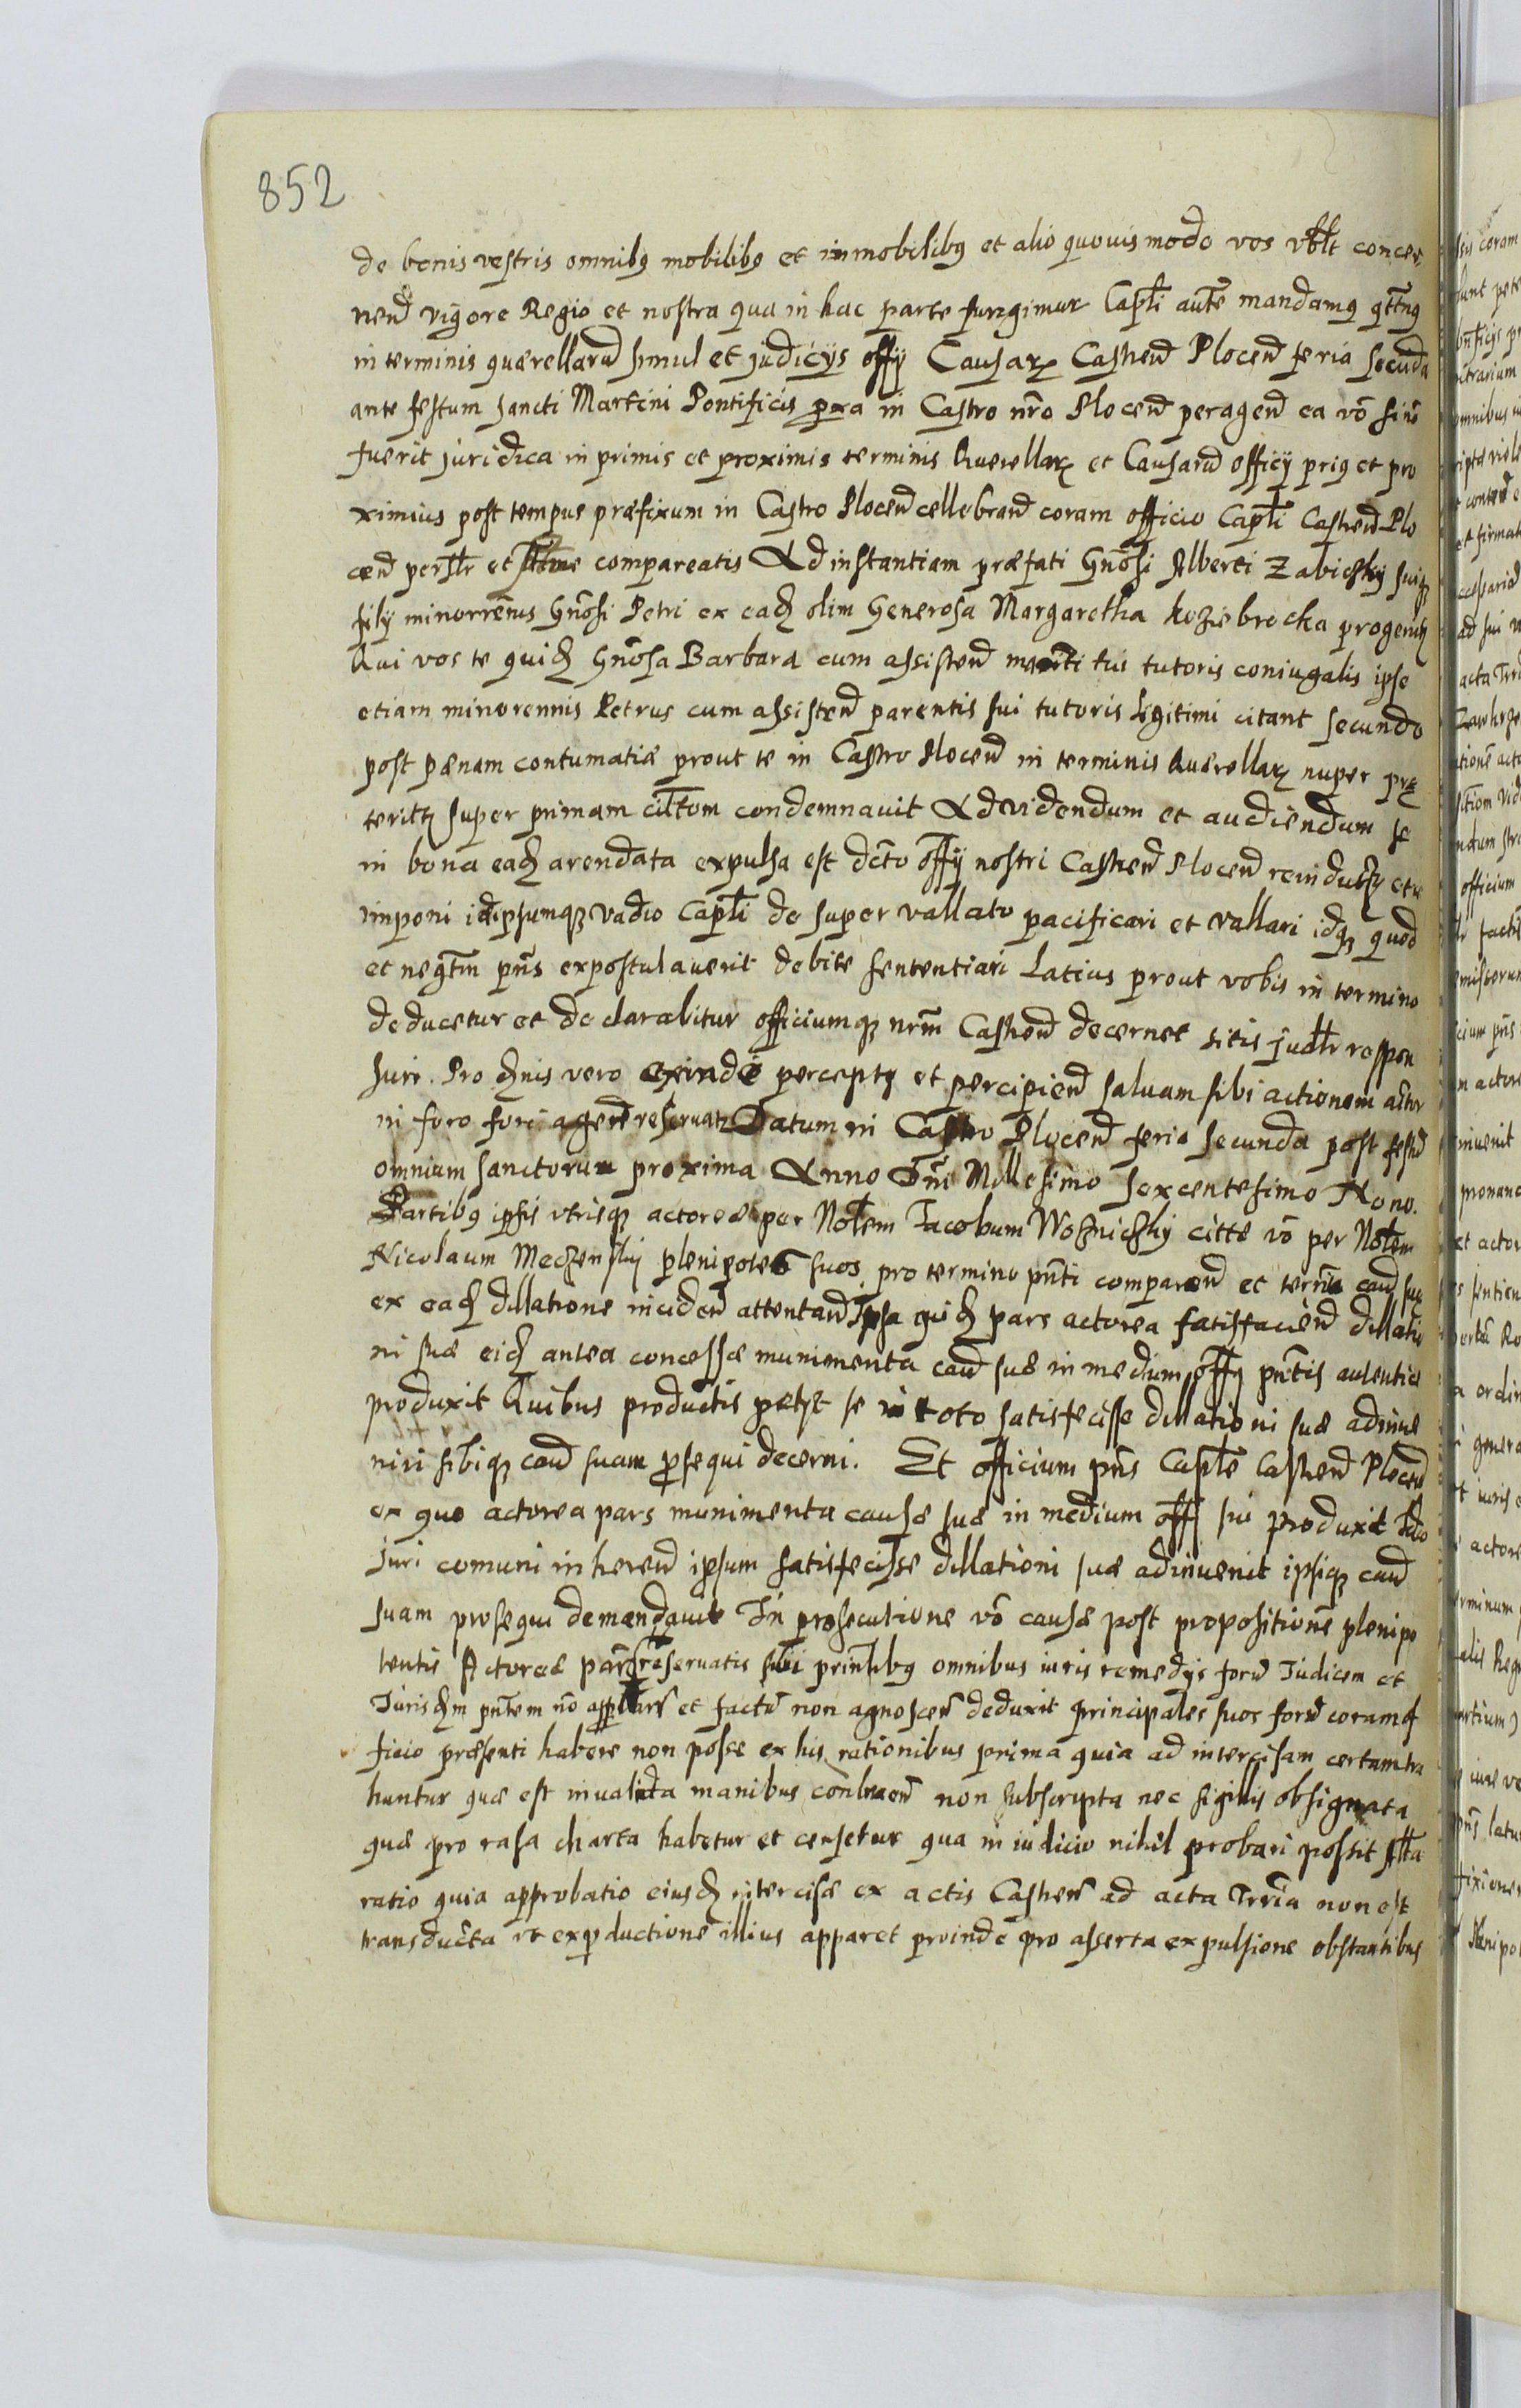 852
de bonis vestris omnibq mobilibq et inmobilibq et alio quouis modo vos vblt concer
nend vigore Regio et nostra qua in hac parte fungimur Captli aute mandamq qttnq
in terminis querellarū simul et judicijs offij Causarz Castren Plocen feria secūda
ante festum sancti Martini Pontificis pxa in Castro nro Plocen peragen ea vō si nō
fuerit juridica in primis et proximis terminis Querellarz et Causarū officij priq et pro
ximius post tempus præfixum in Castro Plocen cellebrand coram officio Captli Castren Plo
cen persltr et compareatis Ad instantiam præfati Gnōsi Alberti Zabiczky suiqz
filij minorrēnis Gnōsi Petri ex eadz olim Generosa Margaretha Koziebrocka progenitz
Qui vos te quidz Gnōsa Barbara cum assisten mariti tui tutoris coniugalis ipse
etiam minorennis Petrus cum assisten parentis sui tutoris Legitimi citant secundo
post pænam contumatiæ prout te in Castro Plocen in terminis Querellarz nuper præ
teritz super primam cittom condemnauit Ad videndum et audiendum se
in bona eadz arendata expulsa est dcto offij nostri Castren Plocen reinduci et
imponi idipsumqz vadio Captli de super vallato pacificari et vallari idqz quod
et negtm pns expostulauerit debite sententiari Latius prout vobis in termino
deducetur et declarabitur officiumqz nrm Castren decernet sitis judltr respon
suri. Pro dnis vero exinde perceptz et percipien saluam sibi actionem
in foro fori agen reseruat Datum in Castro Plocen feria secunda post festū
omnium sanctorum proxima Anno Dni Millesimo sexcentesimo Nono.
Partibq ipsis vtrisqz actorea per Notem Jacobum Wozniczky citte vō per Notem
Nicolaum Meczenskij plenipotes suos pro termino pnti comparen et termīn caus suæ
ex eadz dillatione inciden attentan Ipsa quidz pars actorea satisfacien dillatio
ni suæ eidz antea concessæ munimenta caus suæ in medium offij pntis autentice
produxit Quibus productis petijt se in toto satisfecisse dillationi suæ adinue
niri sibiqz caus suam prsequi decerni. Et officium pns Captle Castren Plocen
ex quo actorea pars munimenta causæ suæ in medium offij sui produxit Ideo
juri comuni inheren ipsum satisfecisse dillationi suæ adinuenit ipsiqz caus
suam prosequi demandauit In prosecutione vō causæ post propositionē plenipo
tentis Actoreæ partis reseruatis sibi principalibq omnibus iuris remedijs forū Judicem et
Jurisdm pntem nō appbars et factū non agnoscen deduxit principales suos forū coram of
ficio præsenti habere non posse ex his rationibus prima quia ad intercisam certam tra
huntur quæ est inualida manibus contrahen non subscripta nec sigillis obsignata
quæ pro rasa charta habetur et censetur qua in iudicio nihil probari possit Altia
ratio quia approbatio eiusdz intercisæ ex actis Castren ad acta Trria non est
transducta vt ex pductione illius apparet proinde pro asserta expulsione obstantibus